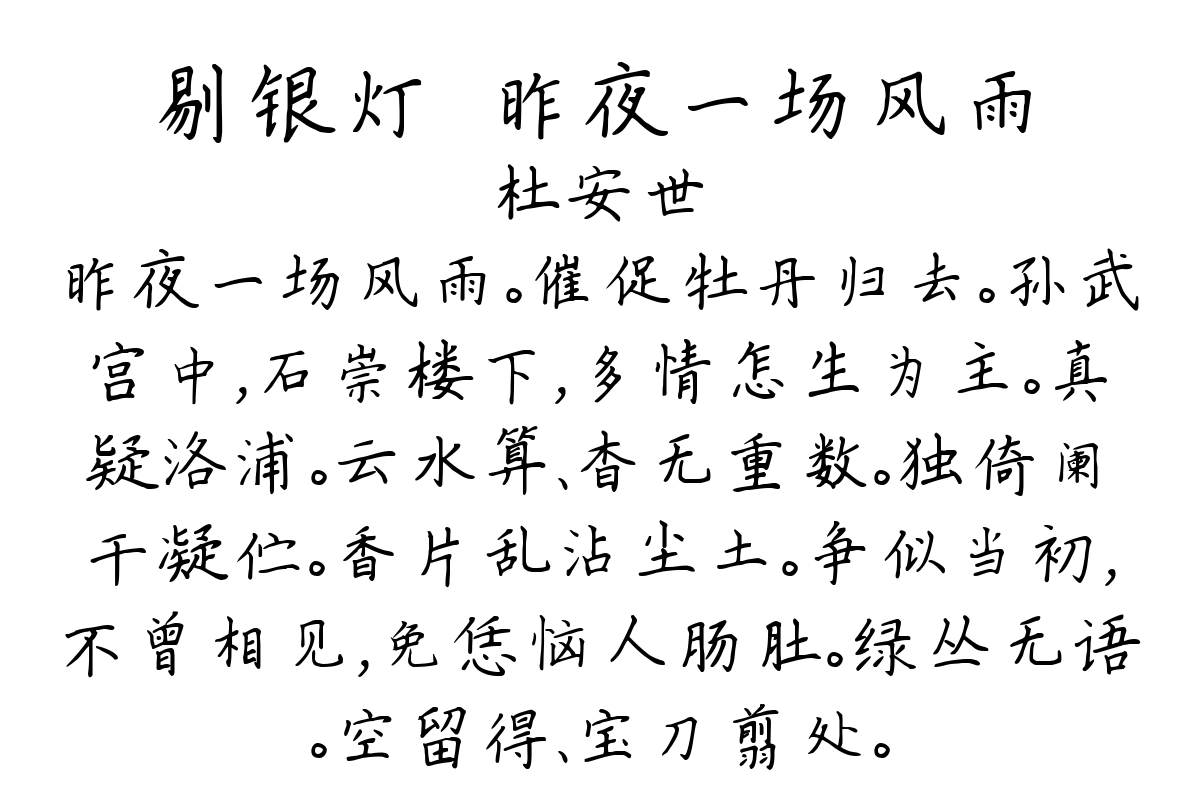 剔银灯 昨夜一场风雨
杜安世
昨夜一场风雨。催促牡丹归去。孙武
宫中,石崇楼下,多情怎生为主。真
疑洛浦。云水算、杳无重数。独倚阑
干凝伫。香片乱沾尘土。争似当初,
不曾相见,免恁恼人肠肚。绿丛无语
。空留得、宝刀翦处。